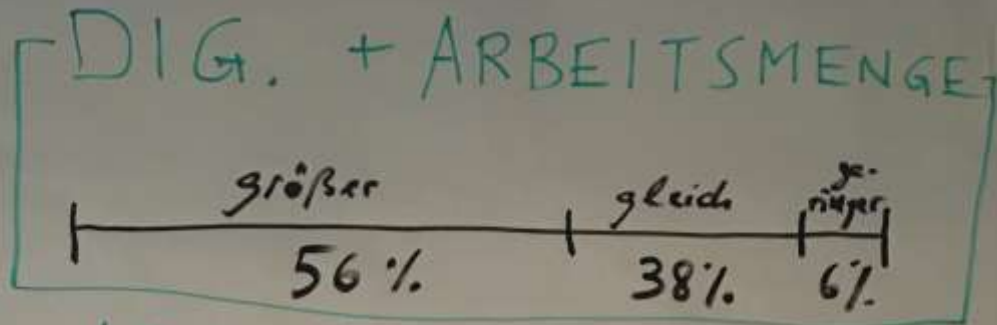 DIG. + ARBEITSMENGE
größer gleich ge-
ringer
56% 38% 6%